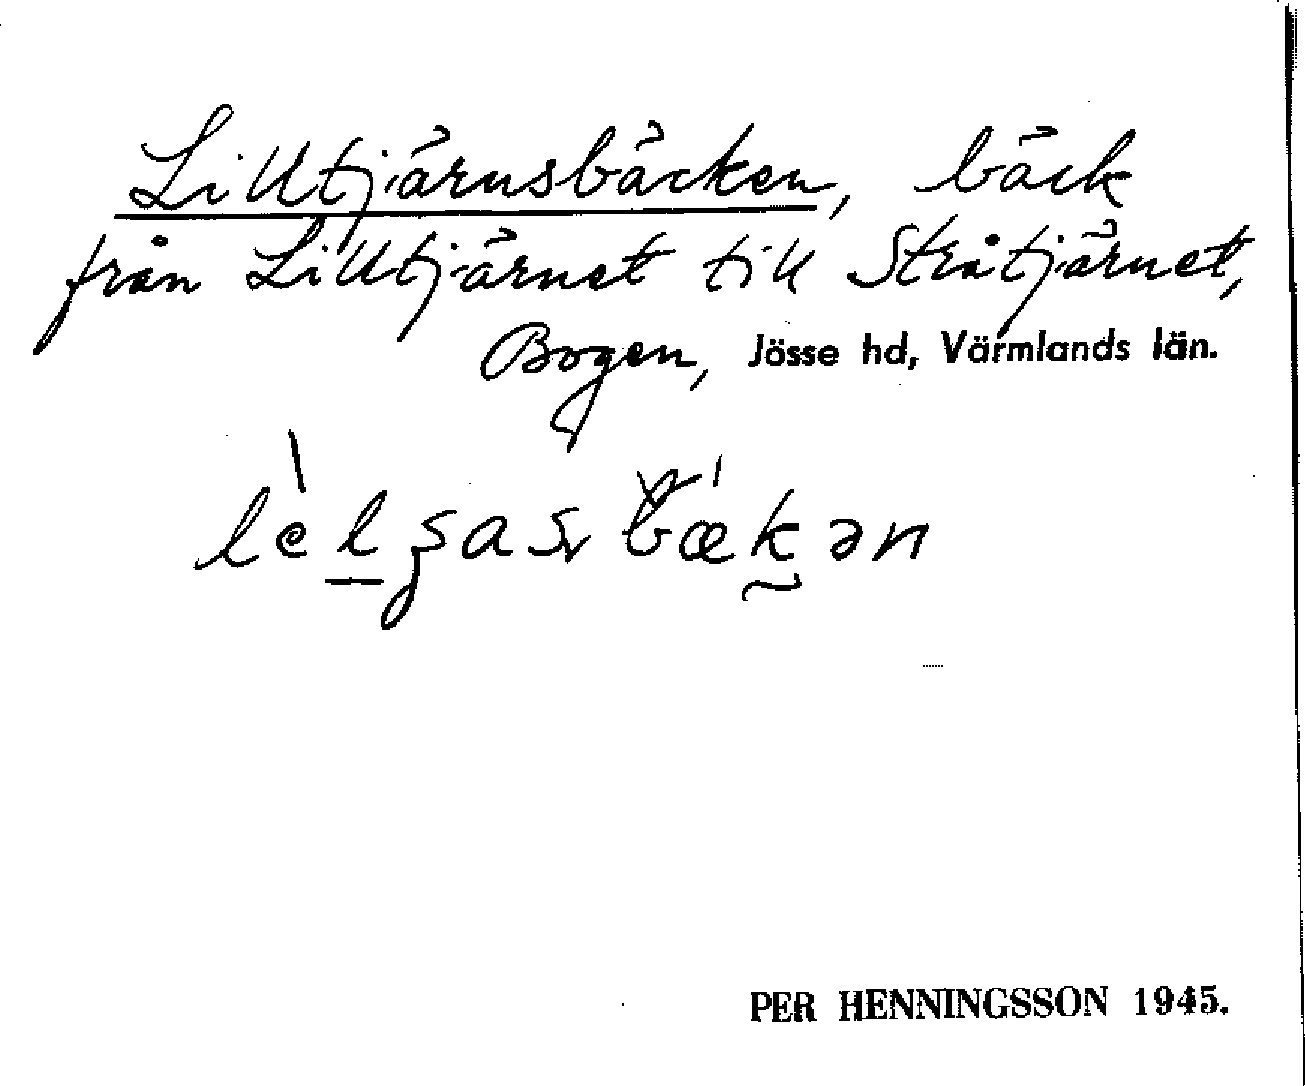 Lilltjärnsbäcken, bäck
från Lilltjärnet till Stråtjärnet,
Bogen, Jösse hd, Värmlands län.
PER HENNINGSSON 1945.